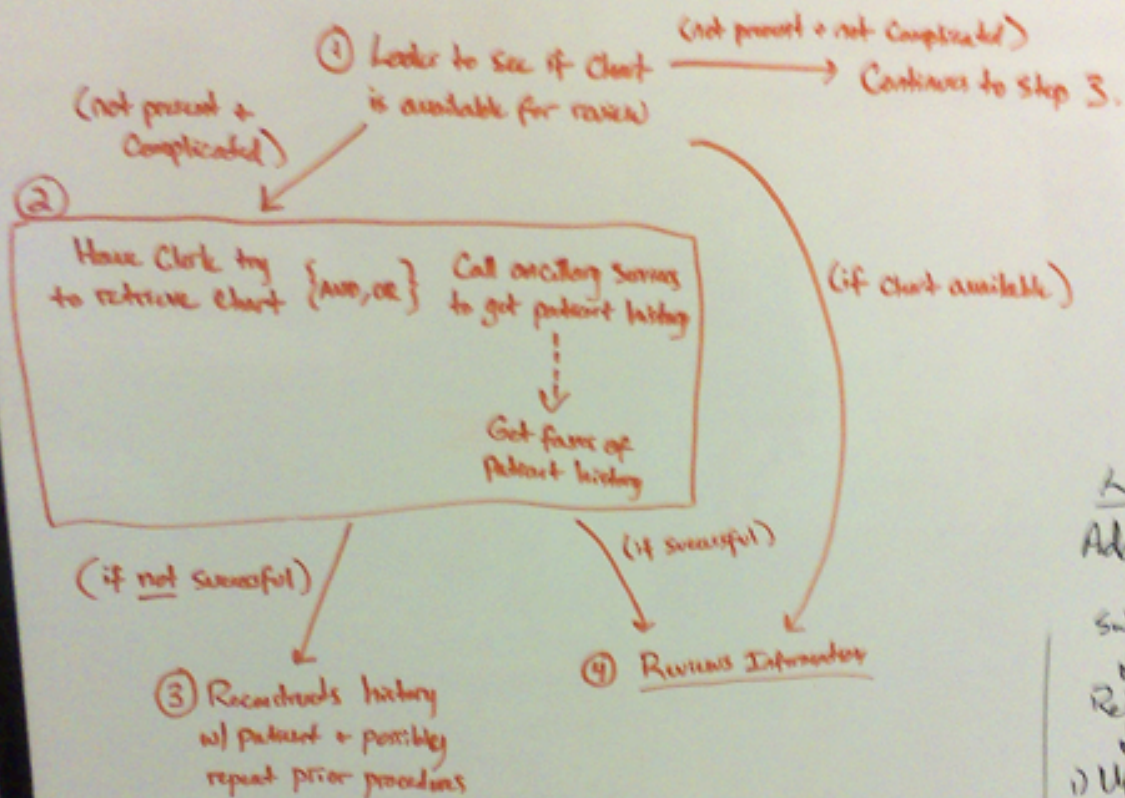 ① Looks to see if Chart
is available for review
(not present + not Complicated)
Continues to Step 3.
(not present +
Complicated)
②
Have Clerk try
to retrieve chart
{AND, OR}
Call ancillary Services
to get patient history
Get faxes of
patient history
(if chart available)
(if not successful)
(if successful)
③ Reconstructs history
w/ patient + possibly
repeat prior procedures
④ Reviews Information
Ad
Re
1) U